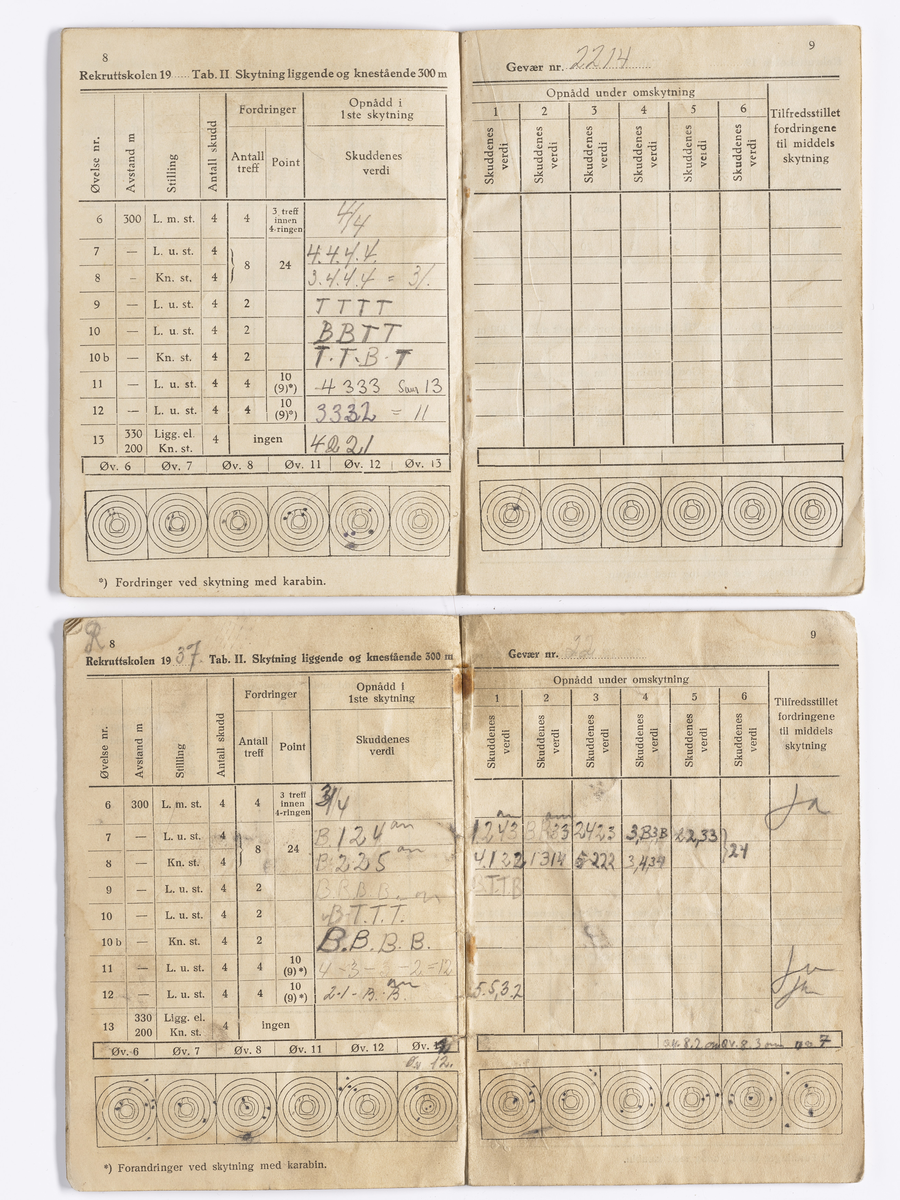 8
Rekruttskolen 19 ..... Tab. II Skytning liggende og knestående 300 m
Øvelse nr. Avstand m Stilling Antall skudd Fordringer Antall treff Point Opnådd i 1ste skytning Skuddenes verdi
6 300 L. m. st. 4 4 3 treff innen 4-ringen 4/4
7 — L. u. st. 4 8 24 4.4.4.4.
8 – Kn. st. 4 3.4.4.4 = 31.
9 — L. u. st. 4 2 T T T T
10 — L. u. st. 4 2 B B T T
10 b — Kn. st. 4 2 T. T. B. T
11 — L. u. st. 4 4 10 (9)*) 4 333 Sum 13
12 — L. u. st. 4 4 10 (9)*) 3332 = 11
13 330 200 Ligg. el. Kn. st. 4 ingen 4221
Øv. 6 Øv. 7 Øv. 8 Øv. 11 Øv. 12 Øv. 13
*) Fordringer ved skytning med karabin.
9
Gevær nr. 2214
Opnådd under omskytning
1 2 3 4 5 6
Skuddenes verdi Skuddenes verdi Skuddenes verdi Skuddenes verdi Skuddenes verdi Skuddenes verdi
Tilfredsstillet fordringene til middels skytning
R 8
Rekruttskolen 19 37. Tab. II. Skytning liggende og knestående 300 m
Øvelse nr. Avstand m Stilling Antall skudd Fordringer Antall treff Point Opnådd i 1ste skytning Skuddenes verdi
6 300 L. m. st. 4 4 3 treff innen 4-ringen 3/4
7 — L. u. st. 4 8 24 B.124 om
8 — Kn. st. 4 B.225 om
9 — L. u. st. 4 2 B.B.B.B. om
10 — L. u. st. 4 2 B.T.T.T.
10 b — Kn. st. 4 2 B. B. B. B.
11 — L. u. st. 4 4 10 (9)*) 4-3- -2=12
12 — L. u. st. 4 4 10 (9)*) 2-1-B.B. om
13 330 200 Ligg. el. Kn. st. 4 ingen
Øv. 6 Øv. 7 Øv. 8 Øv. 11 Øv. 12 Øv.
Øv 12.
*) Forandringer ved skytning med karabin.
9
Gevær nr.
Opnådd under omskytning
1 2 3 4 5 6
Skuddenes verdi Skuddenes verdi Skuddenes verdi Skuddenes verdi Skuddenes verdi Skuddenes verdi
Tilfredsstillet fordringene til middels skytning
Ja
om om
1243 2423 3,B3B 22,33
4.122 1314 5222 3,434 24
B.T.T.B
Ja
5.5,3.2 Ja
øv. 8. 2 om Øv. 8. 3 om 7